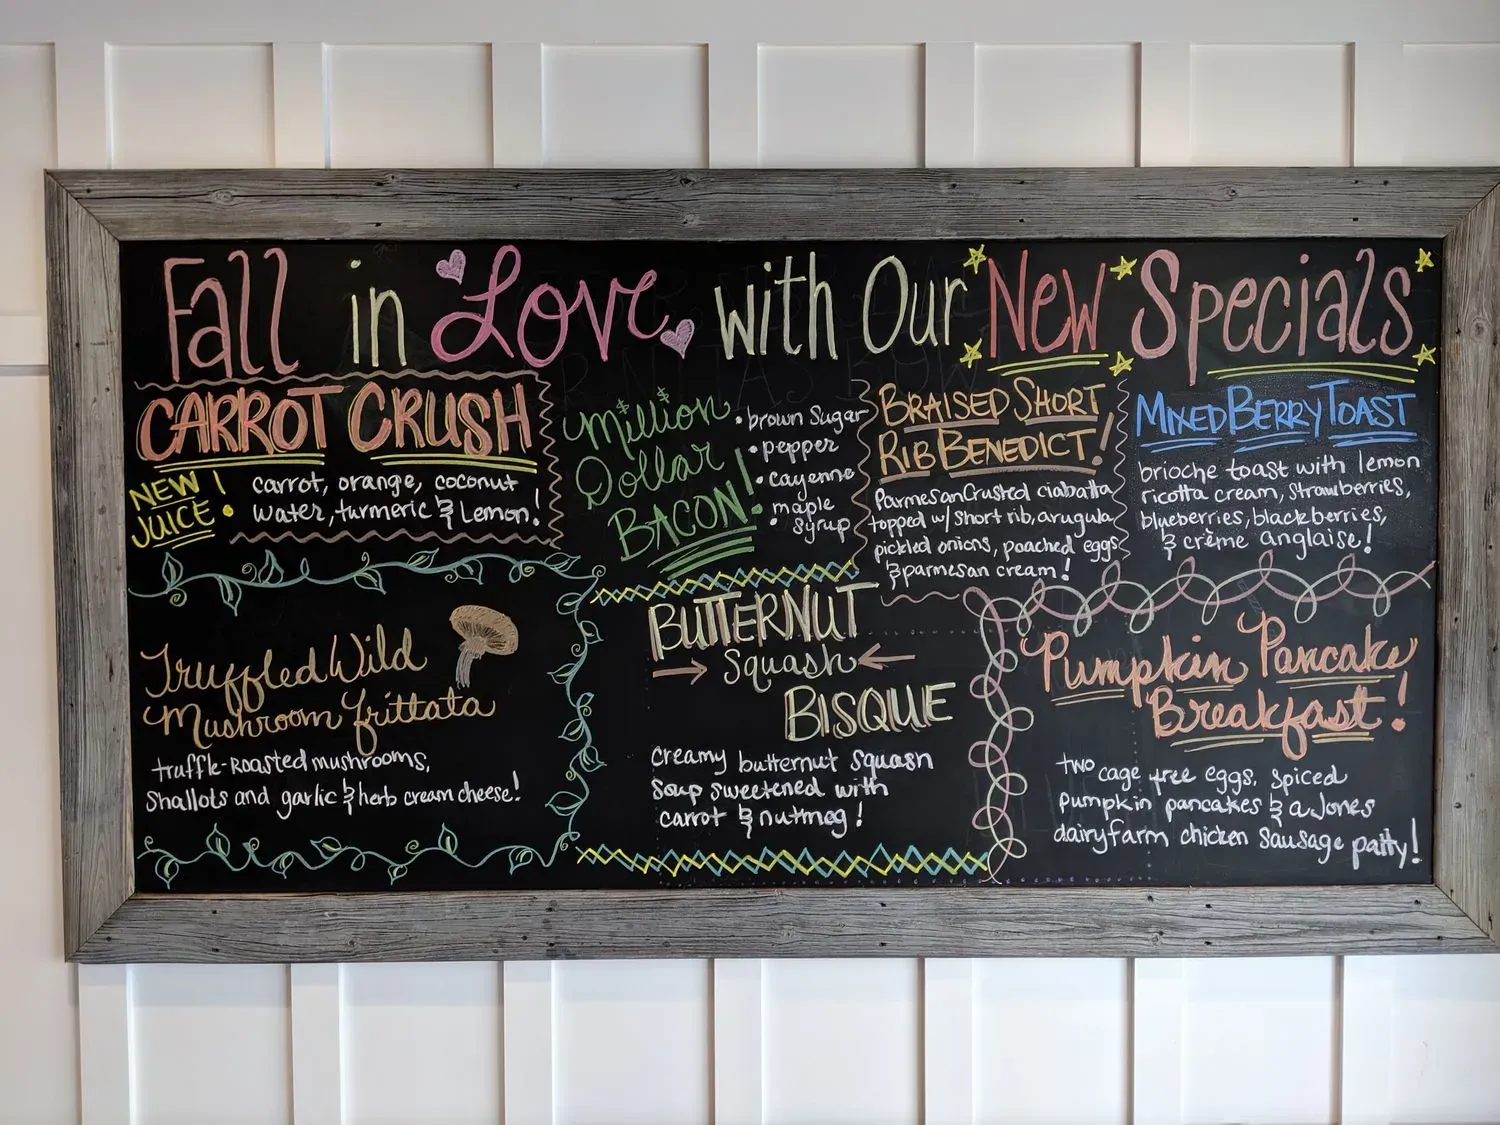 Fall in Love with Our New Specials
CARROT CRUSH
NEW
JUICE!
carrot, orange, coconut
water, turmeric & Lemon!
Million
Dollar
BACON!
• brown Sugar
• pepper
• cayenne
• maple
syrup
BRAISED SHORT
RIB BENEDICT!
Parmesan Crusted ciabatta
topped w/ Short rib, arugula
pickled onions, poached eggs
& parmesan cream!
MIXED BERRY TOAST
brioche toast with lemon
ricotta cream, Strawberries,
blueberries, blackberries,
& crème anglaise!
Truffled Wild
Mushroom frittata
truffle-Roasted mushrooms,
Shallots and garlic & herb cream cheese!
BUTTERNUT
Squash
BISQUE
creamy butternut squash
Soup sweetened with
carrot & nutmeg!
Pumpkin Pancake
Breakfast!
two cage free eggs, spiced
pumpkin pancakes & a Jones
dairy farm chicken sausage patty!